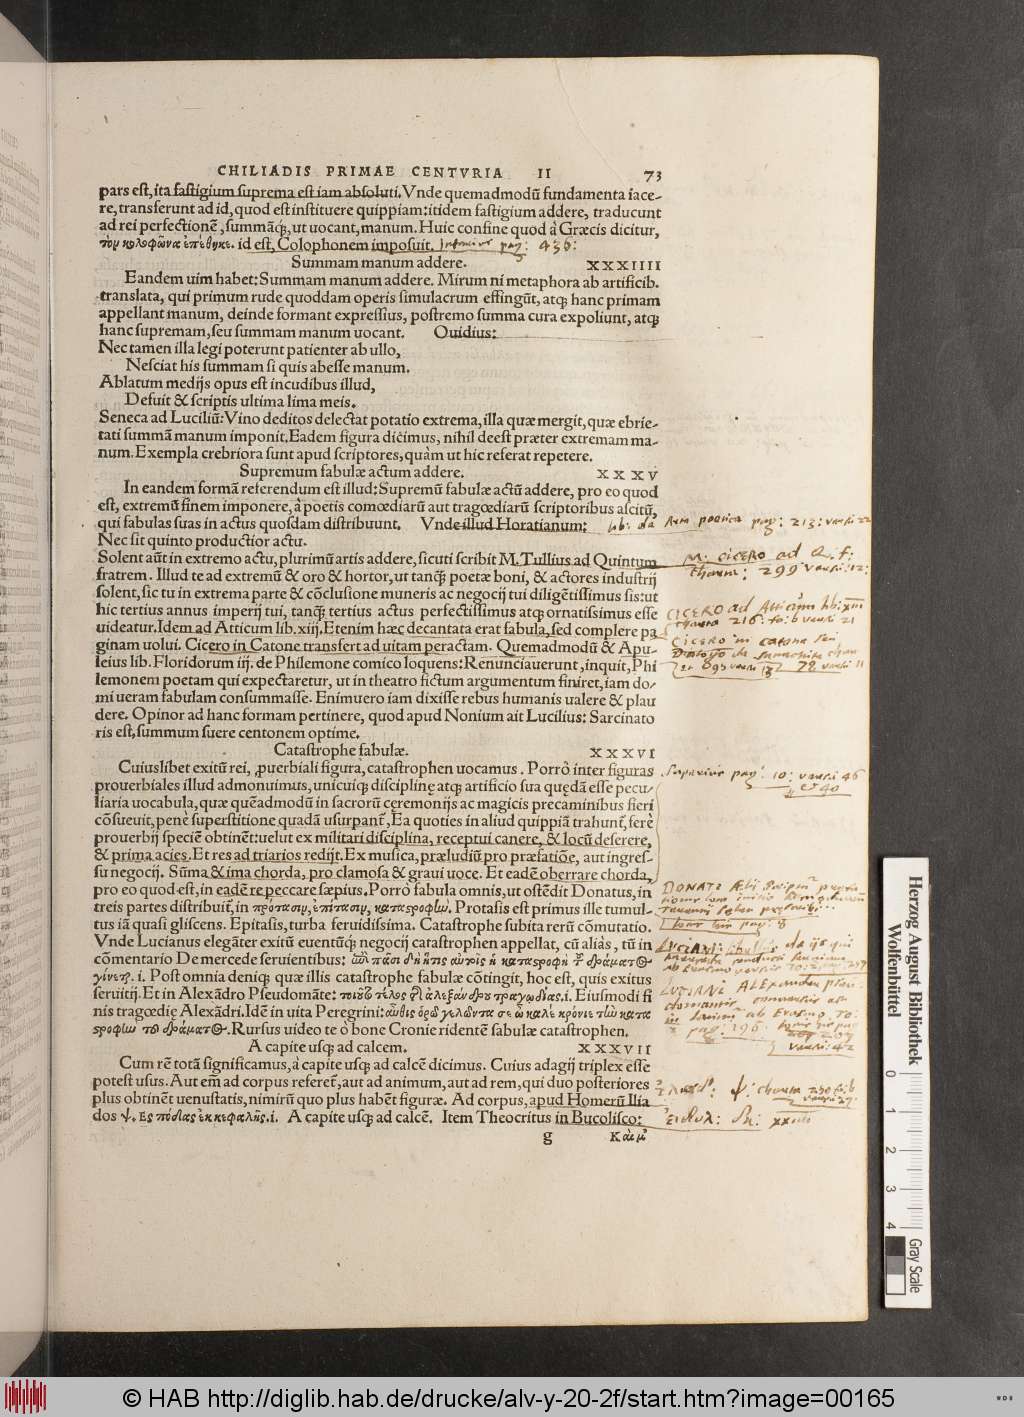 CHILIADIS PRIMAE CENTVRIA II 73
pars est, ita fastigium suprema est iam absoluti. Vnde quemadmodũ fundamenta iace-
re, transferunt ad id, quod est instituere quippiam: itidem fastigium addere, traducunt
ad rei perfectionẽ, summãꝗ̃, ut uocant, manum. Huic confine quod à Græcis dicitur,
τὸν κολοφῶνα ἐπέθηκε. id est, Colophonem imposuit. Inferius pag: 436:
Summam manum addere. XXXIIII
Eandem uim habet: Summam manum addere. Mirum ni metaphora ab artificib.
translata, qui primum rude quoddam operis simulacrum effingũt, atꝗ̃ hanc primam
appellant manum, deinde formant expressius, postremo summa cura expoliunt, atꝗ̃
hanc supremam, seu summam manum uocant. Ouidius:
Nec tamen illa legi poterunt patienter ab ullo,
Nesciat his summam si quis abesse manum.
Ablatum medijs opus est incudibus illud,
Defuit & scriptis ultima lima meis.
Seneca ad Luciliũ: Vino deditos delectat potatio extrema, illa quæ mergit, quæ ebrie-
tati summã manum imponit. Eadem figura dicimus, nihil deest præter extremam ma-
num. Exempla crebriora sunt apud scriptores, quàm ut hic referat repetere.
Supremum fabulæ actum addere. XXXV
In eandem formã referendum est illud: Supremũ fabulæ actũ addere, pro eo quod
est, extremũ finem imponere, à poetis comœdiarũ aut tragœdiarũ scriptoribus ascitũ,
qui fabulas suas in actus quosdam distribuunt. Vnde illud Horatianum: lib: de Arte poetica pag: 213: versu 22
Nec sit quinto productior actu.
Solent aũt in extremo actu, plurimũ artis addere, sicuti scribit M. Tullius ad Quintum
M. CICERO ad Q. f:
fratrem. Illud te ad extremũ & oro & hortor, ut tanꝗ̃ poetæ boni, & actores industrij
charta: 299 versu: 12:
solent, sic tu in extrema parte & cõclusione muneris ac negocij tui diligẽtissimus sis: ut
hic tertius annus imperij tui, tanꝗ̃ tertius actus perfectissimus atꝗ̃ ornatissimus esse
CICERO ad Atticum lib: xiii
uideatur. Idem ad Atticum lib. xiij. Etenim hæc decantata erat fabula, sed complere pa
charta 216: fo: b versu 21
ginam uolui. Cicero in Catone transfert ad uitam peractam. Quemadmodũ & Apu-
CICERO in catone seu
leius lib. Floridorum iij. de Philemone comico loquens: Renunciauerunt, inquit, Phi
lemonem poetam qui expectaretur, ut in theatro fictum argumentum finiret, iam do-
mi ueram fabulam consummasse. Enimuero iam dixisse rebus humanis ualere & plau
dere. Opinor ad hanc formam pertinere, quod apud Nonium ait Lucilius: Sarcinato
ris est, summum suere centonem optime.
Catastrophe fabulæ. XXXVI
Cuiuslibet exitũ rei, ꝓuerbiali figura, catastrophen uocamus. Porrò inter figuras
Superius pag: 10: versu 46
et 40
prouerbiales illud admonuimus, unicuiꝗ̃ disciplinę atꝗ̃ artificio sua quędã esse pecu-
liaria uocabula, quæ quẽadmodũ in sacrorũ cęremonijs ac magicis precaminibus fieri
cõsueuit, penè superstitione quadã usurpant̃, Ea quoties in aliud quippiã trahunt̃, ferè
prouerbij speciẽ obtinẽt: uelut ex militari disciplina, receptui canere, & locũ deserere,
& prima acies. Et res ad triarios redijt. Ex musica, præludiũ pro præfatiõe, aut ingres-
su negocij. Sũma & ima chorda, pro clamosa & graui uoce. Et eadẽ oberrare chorda,
pro eo quod est, in eadẽ re peccare sæpius. Porrò fabula omnis, ut ostẽdit Donatus, in
treis partes distribuit̃, in πρότασιν, ἐπίτασιν, καταστροφὴν. Protasis est primus ille tumul-
tus iã quasi gliscens. Epitasis, turba feruidissima. Catastrophe subita rerũ cõmutatio.
Vnde Lucianus elegãter exitũ euentũꝗ̃ negocij catastrophen appellat, cũ aliàs, tũ in
cõmentario De mercede seruientibus: ὧν πᾶσι δὴ ἥτις αὐτοῖς ἡ καταστροφὴ τ͂ δράματος
γίνεται. i. Post omnia deniꝗ̃ quæ illis catastrophe fabulæ cõtingit, hoc est, quis exitus
seruitij. Et in Alexãdro Pseudomãte: τοιοῦτο τέλος τῆς ἀλεξάνδρου τραγῳδίας. i. Eiusmodi fi
nis tragœdię Alexãdri. Idẽ in uita Peregrini: αὖθις ὁρῶ γελῶντα σε ὦ καλὲ κρόνιε τὴν κατα
στροφὴν τοῦ δράματος. Rursus uideo te ò bone Cronie ridentẽ fabulæ catastrophen.
A capite usꝗ̃ ad calcem. XXXVII
Cum rẽ totã significamus, à capite usꝗ̃ ad calcẽ dicimus. Cuius adagij triplex esse
potest usus. Aut em̃ ad corpus referet̃, aut ad animum, aut ad rem, qui duo posteriores
plus obtinẽt uenustatis, nimirũ quo plus habẽt figuræ. Ad corpus, apud Homerũ Ilia
dos ψ. Ἐς πόδας ἐκ κεφαλῆς. i. A capite usꝗ̃ ad calcẽ. Item Theocritus in Bucolisco:
g Καὶ μ᾽
Herzog August Bibliothek
Wolfenbüttel
0 1 2 3 4
Gray Scale
© HAB http://diglib.hab.de/drucke/alv-y-20-2f/start.htm?image=00165